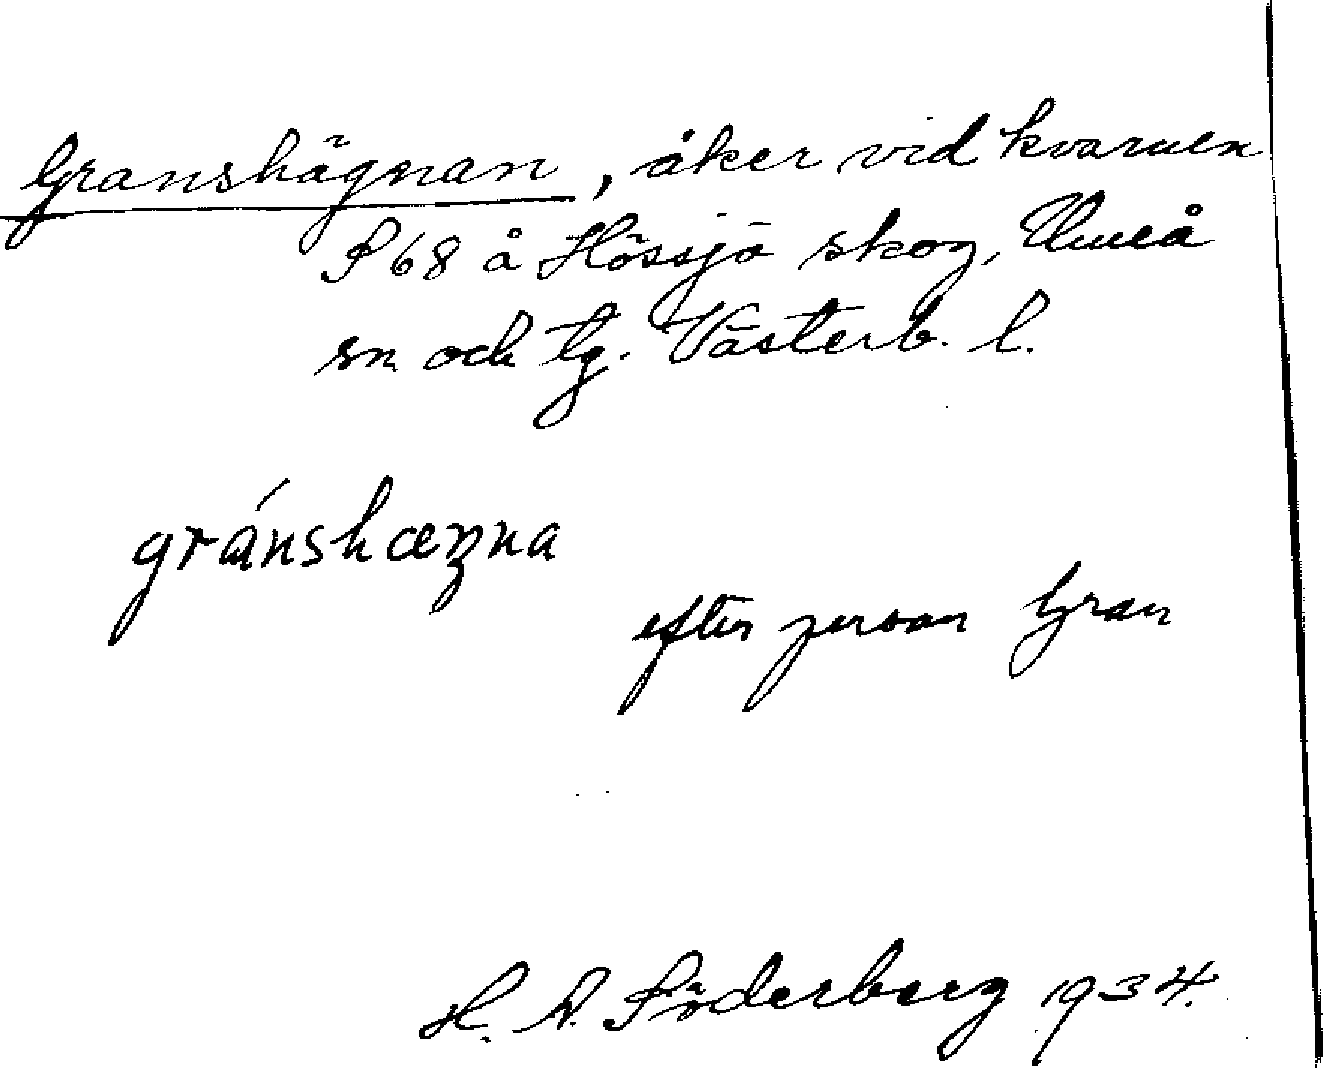 Granshägnan, åker vid kvarnen
P68 å Hössjö skog, Umeå
sn och tg. Västerb. l.
gránshæŋna
efter person Gran
H. A. Söderberg 1934.